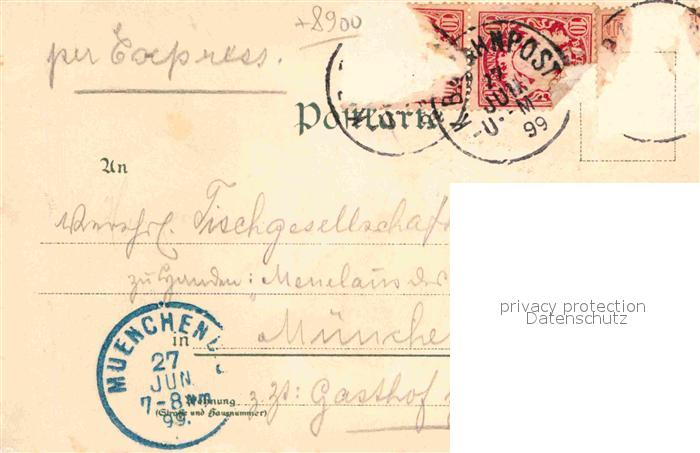 +8900
per Express.
10 10
K.BAHNPOST
17
JUN
99
Postkarte
An
Tischgesellschaft
zu Handen: "Menelaus des
in München
MUENCHEN
27
JUN.
7-8 Nm
99.
Wohnung
(Straße und Hausnummer)
z. Zt: Gasthof
privacy protection
Datenschutz